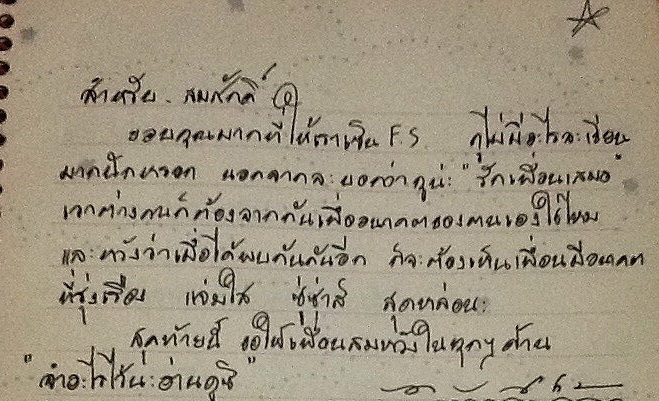 สำหรับ สมศักดิ์
ขอบคุณมากที่ให้เราเซ็น F.S กูไม่มีอะไรจะเขียน
มากนักหรอก นอกจากจะบอกว่ากูน่ะ "รักเพื่อนเสมอ"
เราต่างคนก็ต้องจากกันเพื่ออนาคตของตนเองใช่ไหม
และหวังว่าเมื่อได้พบกันกันอีก ก็จะต้องเห็นเพื่อนมีอนาคต
ที่รุ่งเรือง แจ่มใส ซู่ซ่าส์ สุดหล่อนะ
สุดท้ายนี้ ขอให้เพื่อนสมหวังในทุกๆ ด้าน